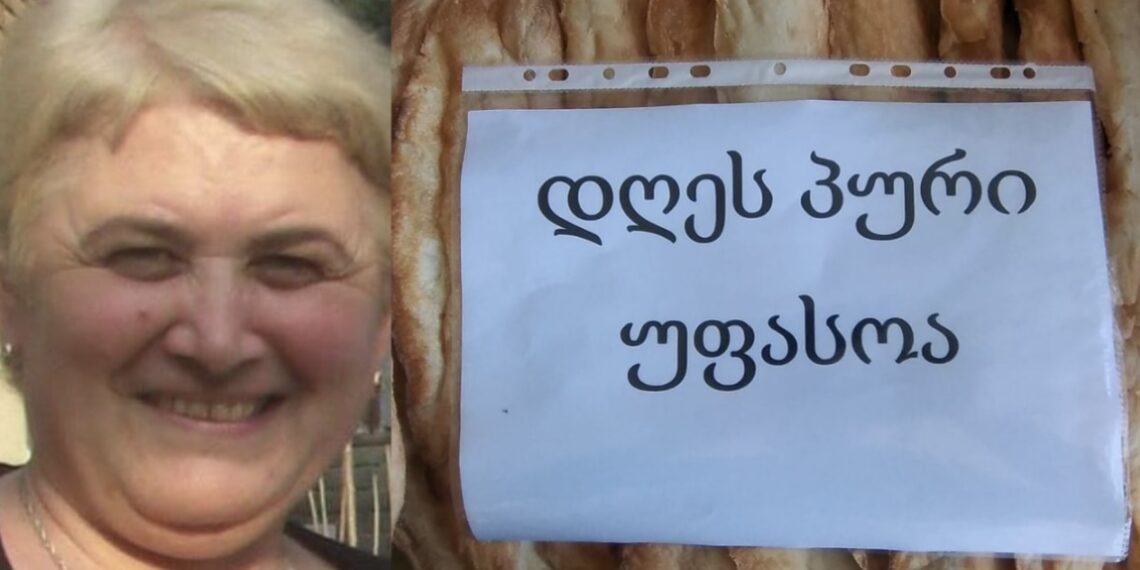 დღეს პური
უფასოა